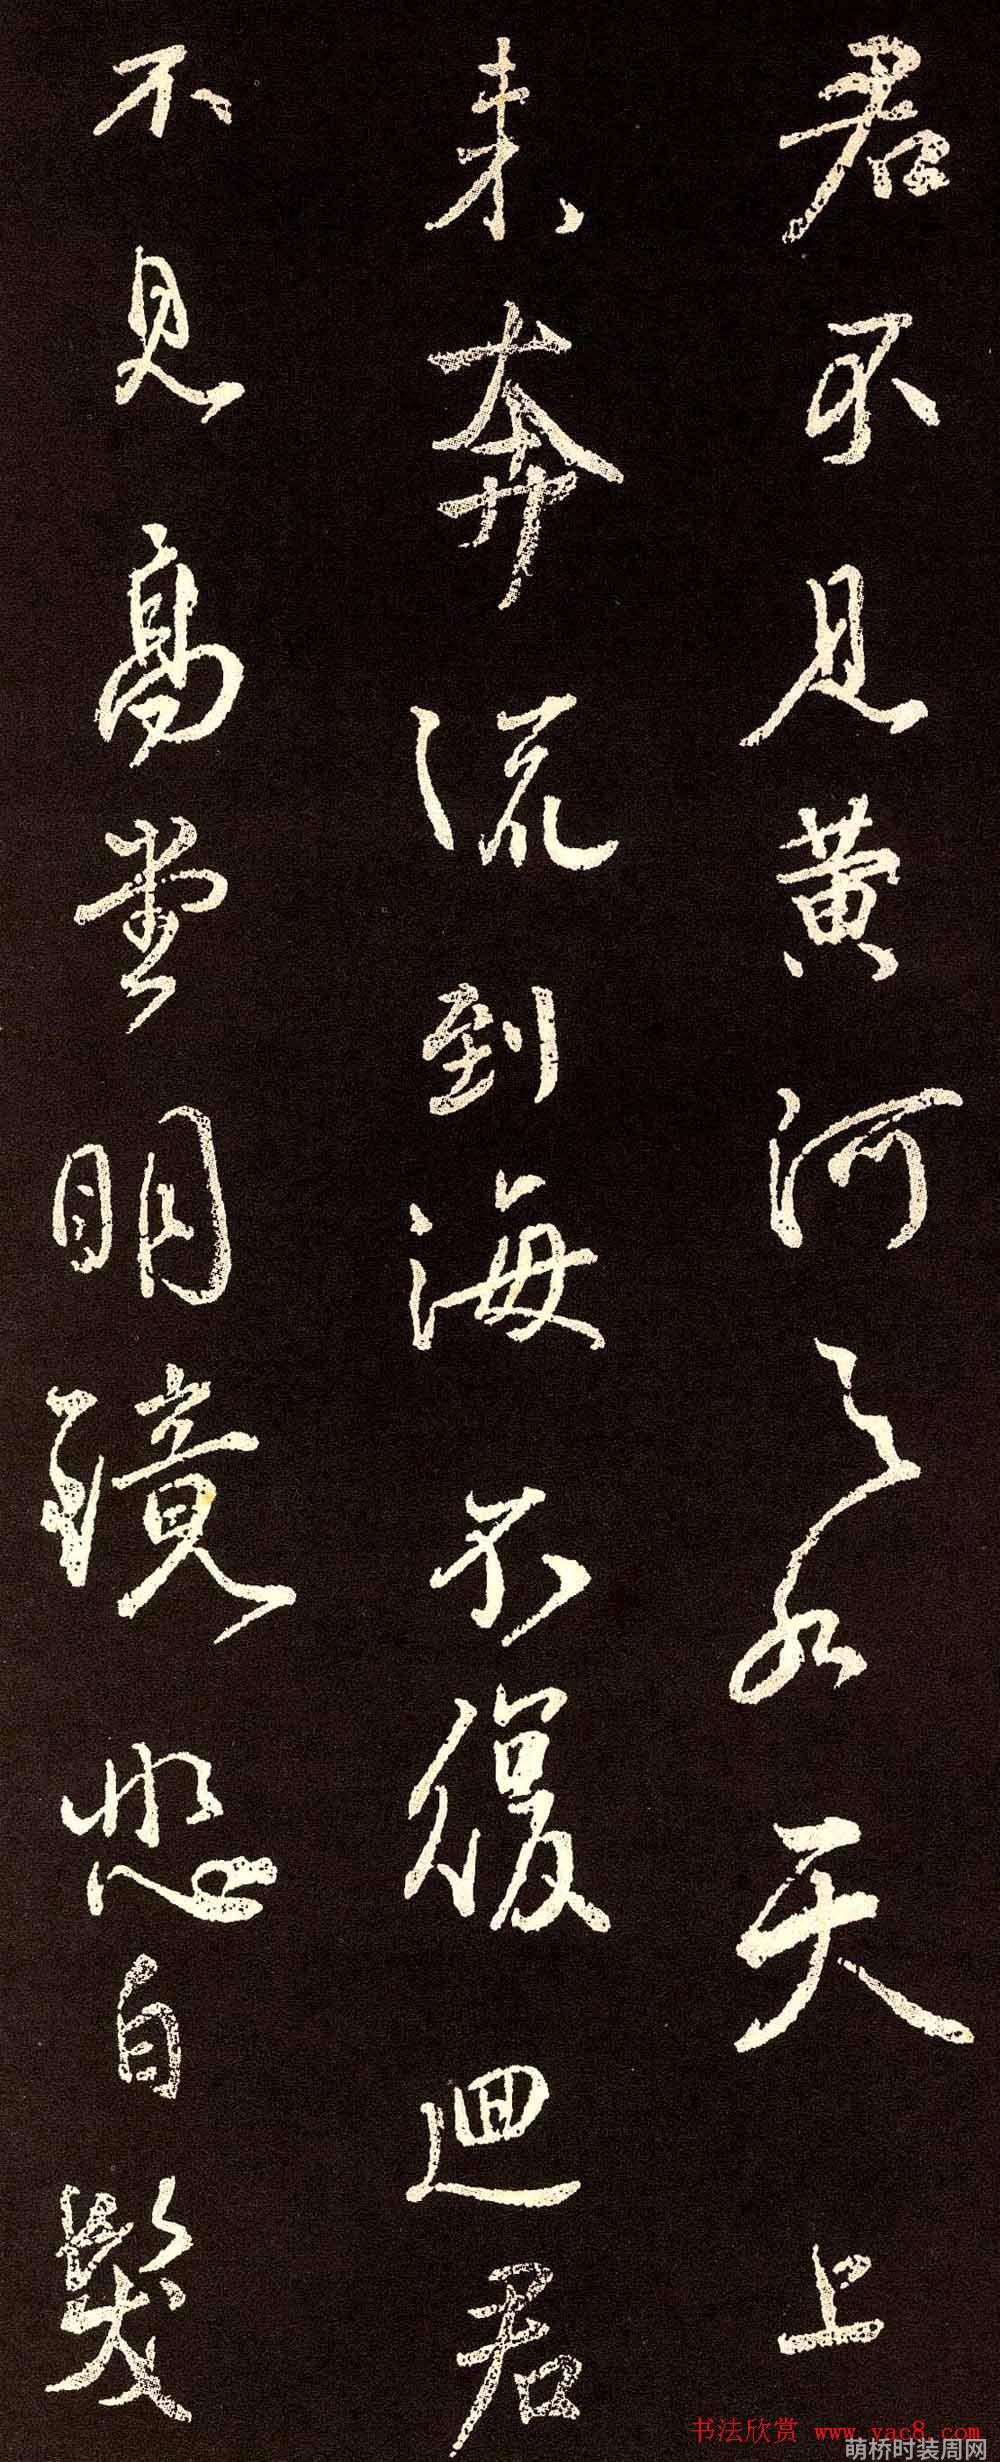 君不見黄河之水天上
来奔流到海不復迴君
不見高堂明鏡悲白髮
书法欣赏 www.yac8.com
萌桥时装周网